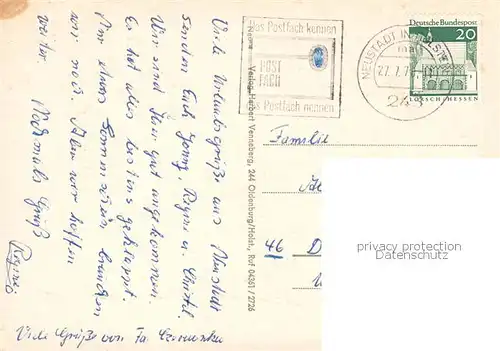 Viele Urlaubsgrüße aus Neustadt
senden Euch Jonny, Regine u.
Wir sind hier gut angekommen.
Es hat alles bestens geklappt.
Nur etwas Sonnenschein brauchen
wir noch. Aber wir hoffen
weiter. Nochmals Grüß
Viele Grüße von Fa.
Verlag Herbert Venneberg, 244 Oldenburg/Holst., Ruf 04361 / 2726
Das Postfach kennen
POST
FACH
das Postfach nennen
NEUSTADT IN HOLST
27.7.7
24
Deutsche Bundespost
20
LORSCH/HESSEN
Familie
46 D
privacy protection
Datenschutz